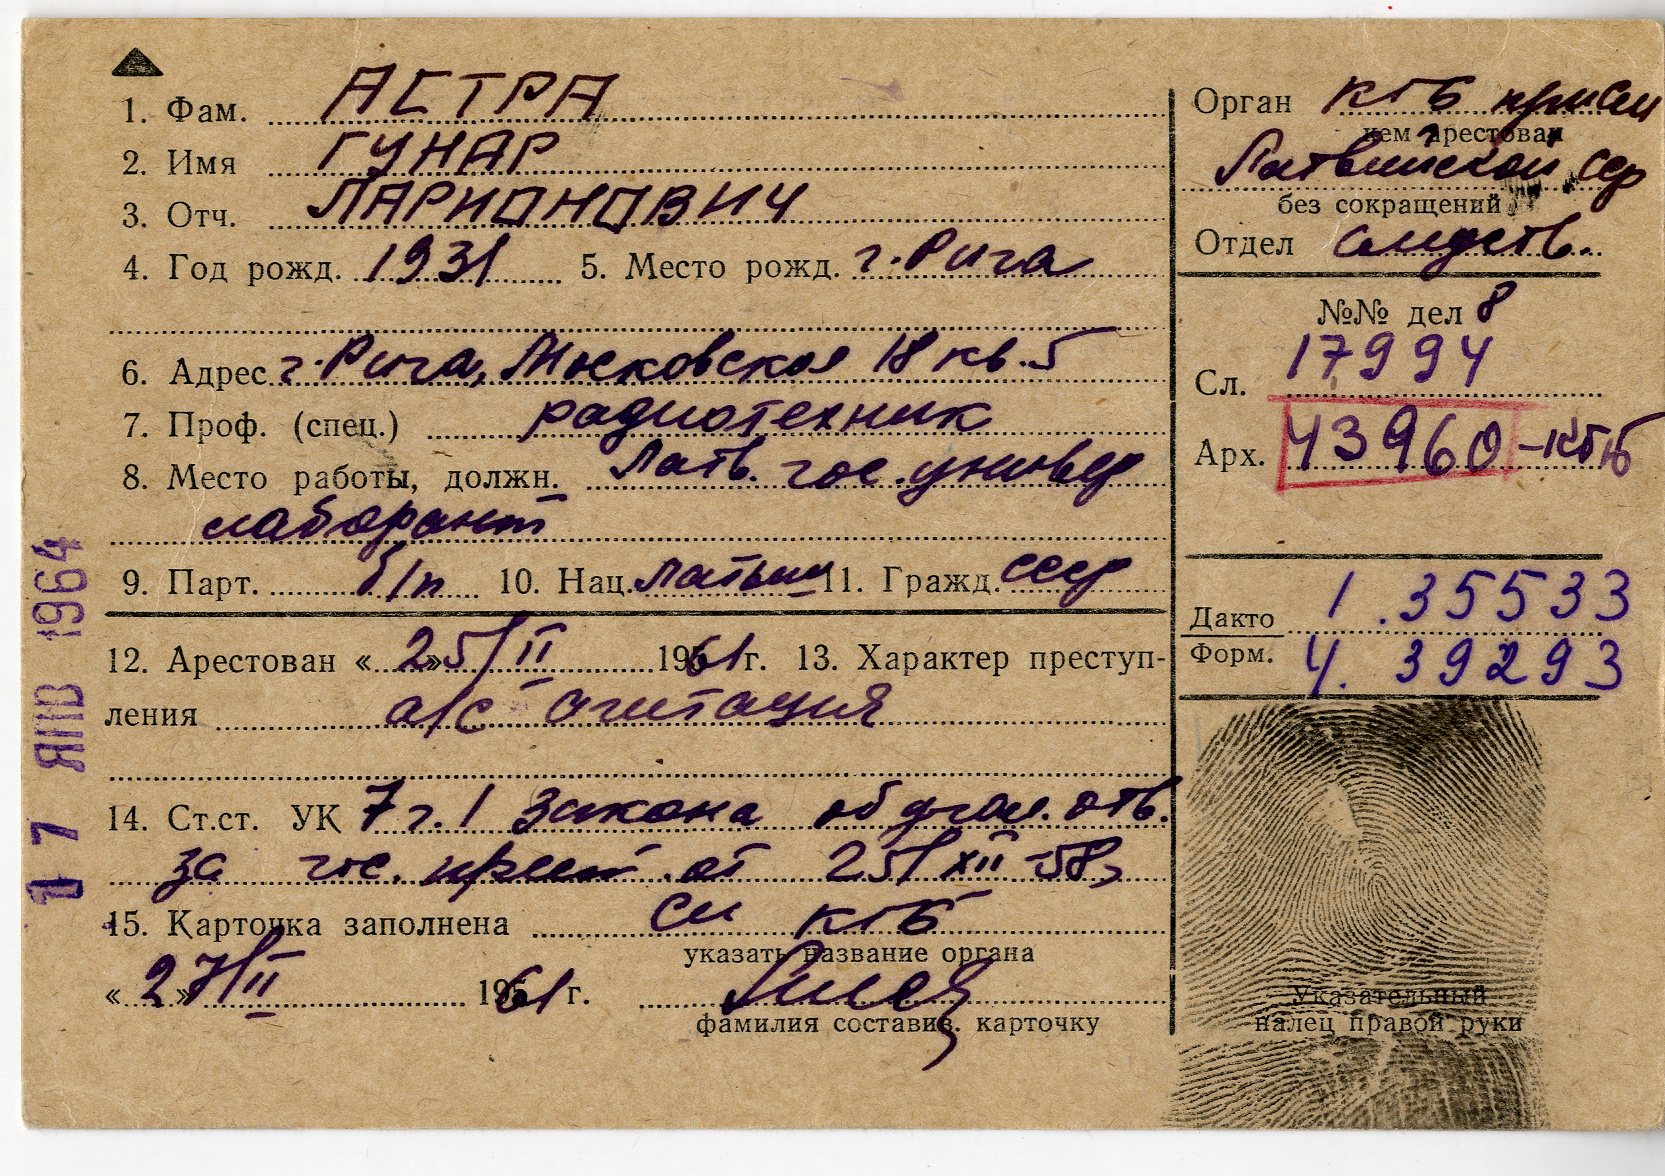 1. Фам. АСТРА
2. Имя ГУНАР
3. Отч. ЛАРИОНОВИЧ
4. Год рожд. 1931 5. Место рожд. г. Рига
6. Адрес г. Рига, Московская 18 кв. 5
7. Проф. (спец.) радиотехник
8. Место работы, должн. Латв. гос. универ
лаборант
9. Парт. б/п 10. Нац. латыш 11. Гражд. СССР
12. Арестован « 25 » II 1961 г. 13. Характер преступ-
ления а/с агитация
14. Ст.ст. УК 7 г. 1 закона об угол. отв.
за гос. прест. от 25/XII-58,
15. Карточка заполнена КГБ
указать название органа
« 27 » II 1961 г.
фамилия составив. карточку
Орган КГБ при См
кем арестован
Латвийской ССР
без сокращений
Отдел следств.
№№ дел 8
Сл. 17994
Арх. 43960
Дакто 1. 35533
Форм. 4. 39293
Указательный
палец правой руки
17 ЯНВ 1964